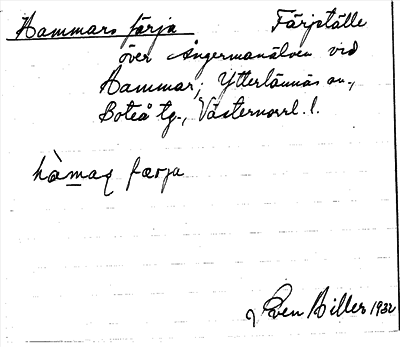 Hammars färja Färjställe
över Ångermanälven vid
Hammar, Ytterlännäs sn.,
Boteå tg., Västernorrl. l.
hàmaʂ færja
Sven Hiller 1932